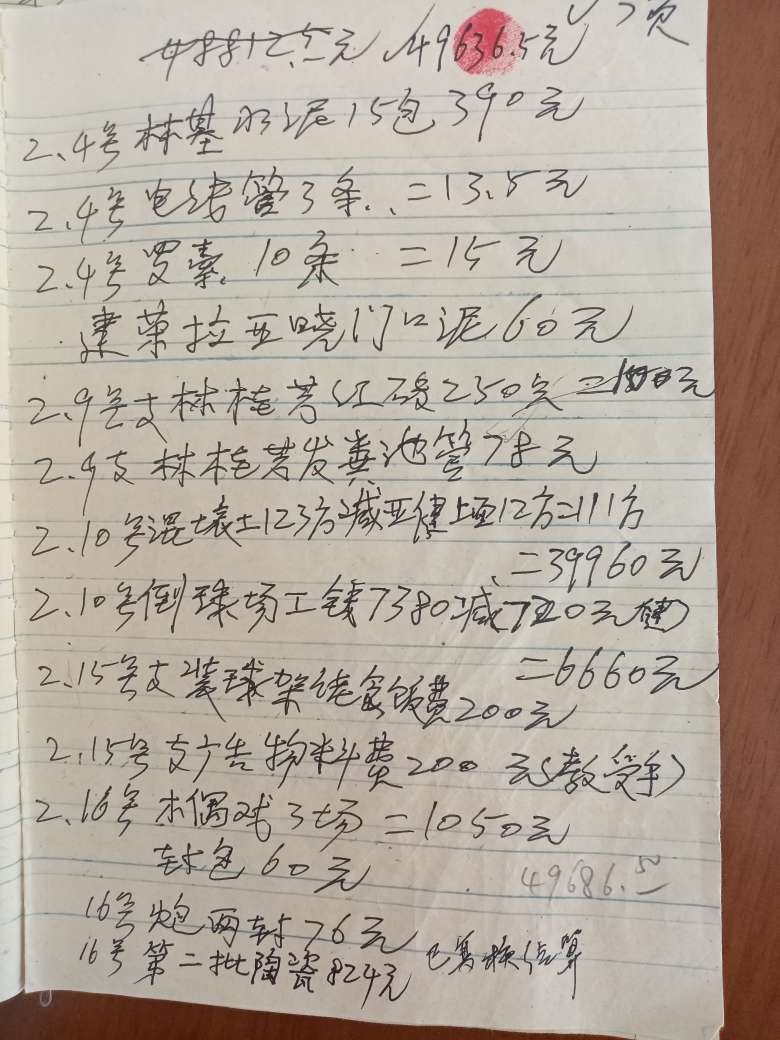 48812.5元 49636.5元
2.4号林基水泥15包390元
2.4号电线管3条=13.5元
2.4号罗素10条=15元
建莱拉亚晓门口泥60元
2.9号支林桂芳红砖250只=100元
2.9支林桂芳发粪池管78元
2.10号混壤土123方减亚健上面12方=111方
=39960元
2.10号倒球场工钱7380减720元(健)
=6660元
2.15号支装球架线食饭费200元
2.15号支广告物料费200元(教受手)
2.16号木偶戏3场=1050元
封包60元
49686.50
16号炮两封76元
16号第二批陶瓷824元 已算